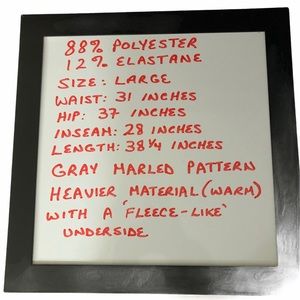 88% POLYESTER
12% ELASTANE
SIZE: LARGE
WAIST: 31 INCHES
HIP: 37 INCHES
INSEAM: 28 INCHES
LENGTH: 38 1/4 INCHES
GRAY MARLED PATTERN
HEAVIER MATERIAL (WARM)
WITH A 'FLEECE-LIKE'
UNDERSIDE